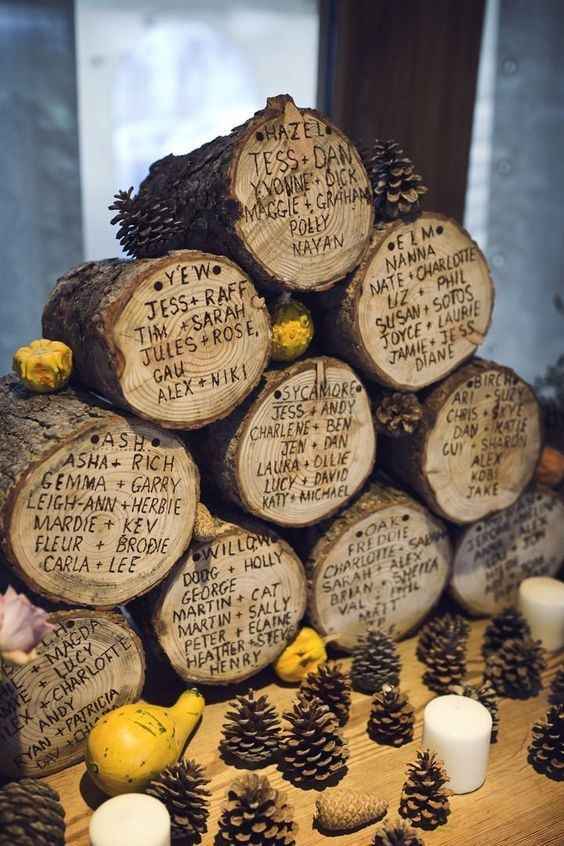 •HAZEL•
TESS + DAN
YVONNE + DICK
MAGGIE + GRAHAM
POLLY
NAYAN
•YEW•
JESS + RAFF
TIM + SARAH
JULES + ROSE.
GAU
ALEX + NIKI
•ELM•
NANNA
NATE + CHARLOTTE
LIZ + PHIL
SUSAN + SOTOS
JOYCE + LAURIE
JAMIE + JESS
DIANE
•ASH•
ASHA + RICH
GEMMA + GARRY
LEIGH-ANN + HERBIE
MARDIE + KEV
FLEUR + BRODIE
CARLA + LEE
•SYCAMORE•
JESS + ANDY
CHARLENE + BEN
JEN + DAN
LAURA + OLLIE
LUCY + DAVID
KATY + MICHAEL
•BIRCH•
ARI + SUZY
CHRIS + SKYE
DAN + KATIE
GUY + SHARON
ALEX
KOBI
JAKE
MAGDA
LUCY
ALEX + CHARLOTTE
ANDY
RYAN + PATRICIA
DAV
•WILLOW•
DOUG + HOLLY
GEORGE
MARTIN + CAT
MARTIN + SALLY
PETER + ELAINE
HEATHER + STEVE
HENRY
•OAK•
FREDDIE
CHARLOTTE +
SARAH + ALEX
BRIAN + SHEILA
VAL + PHIL
ALEX
JON